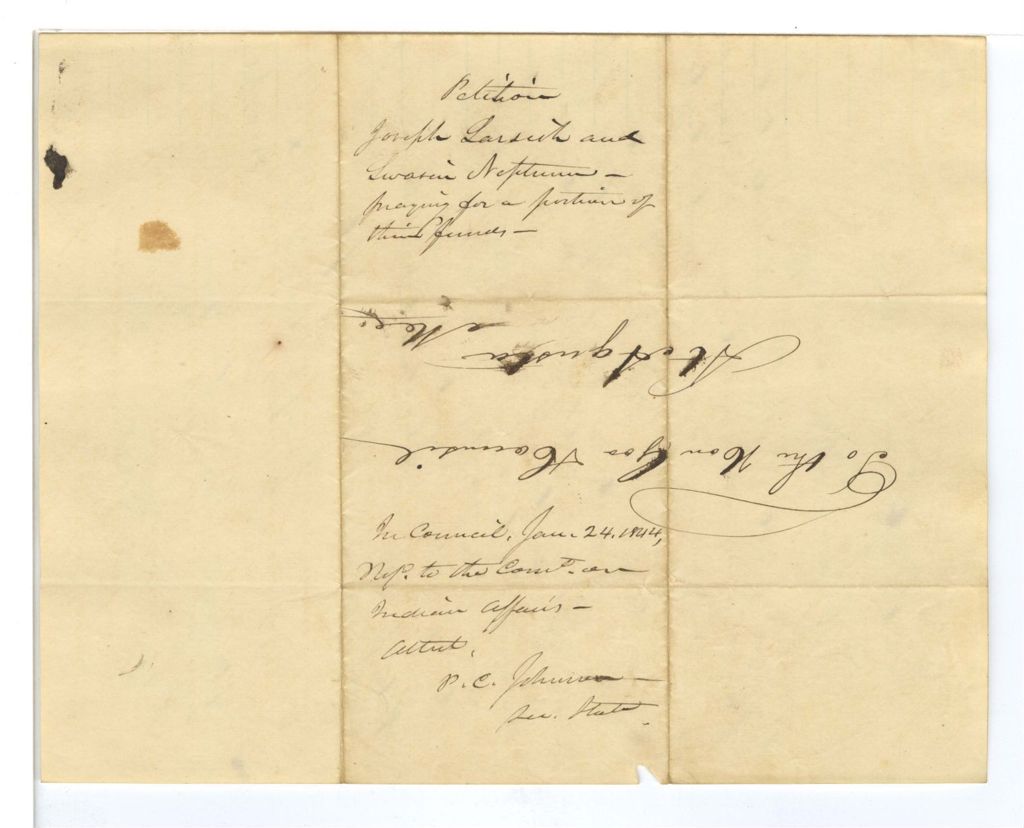 Petition
Joseph Larsich and
Swasin Neptune —
praying for a portion of
their funds —
To the Hon Gov & Council
At Agusta
Me
In Council, Jan. 24. 1844,
Ref. to the Comt. on
Indian Affairs —
Attest,
P. C. Johnson —
Sec. State.